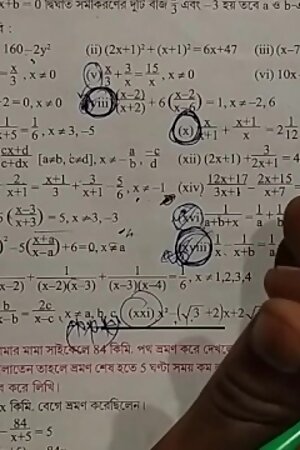 x+b = 0 দ্বিঘাত সমীকরণের দুটি বীজ 1/3 এবং -3 হয় তবে a ও b-
160-2y² (ii) (2x+1)²+(x+1)²=6x+47 (iii) (x-7
x/3, x≠0 (v) x/3+3/x=15/x, x≠0 (vi) 10x
-2=0, x≠0 (viii) (x-2)/(x+2)+6((x-2)/(x-6))=1, x≠-2, 6
1/(x+5)=1/6, x≠3, -5 (x) x/(x+1)+(x+1)/x=2 1/12
(cx+d)/(c+dx) [a≠b, c≠d], x≠-a/b, -c/d (xii) (2x+1)+3/(2x+1)=4
2/(x+1)=(x+1)/3+3/(x+1)-5/6, x≠-1 (xiv) (12x+17)/(3x+1)-(2x+15)/(x+7)
((x-3)/(x+3))=5, x≠3, -3 (xvi) 1/(a+b+x)=1/a+1/b
)²-5((x+a)/(x-a))+6=0, x≠a (xviii) 1/x-1/(x+b)=1/a
x-2)+1/((x-2)(x-3))+1/((x-3)(x-4))=1/6, x≠1,2,3,4
b/(x-b)=2c/(x-c), x≠a, b, c (xxi) x²-(√3+2)x+2√
মার মামা সাইকেলে 84 কিমি. পথ ভ্রমণ করে দেখলে
লাতেন তাহলে ভ্রমণ শেষ হতে 5 ঘণ্টা সময় কম
ব করে লিখি।
x কিমি. বেগে ভ্রমণ করেছিলেন।
-84/(x+5)=5